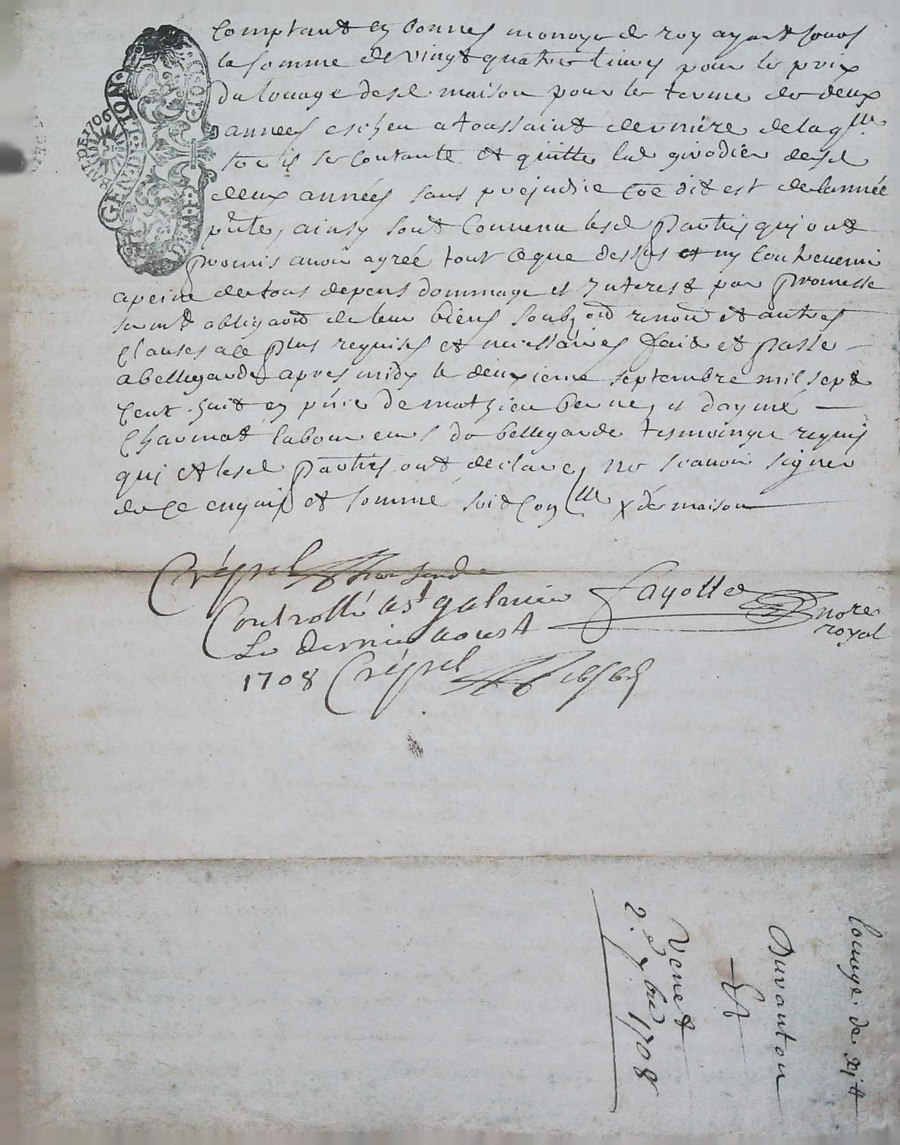 comptant en bonnes monoye de roy ayant
la somme de vingt quatre livres pour le prix
du louage desd maison pour le terme de deux
années escheu a toussaint derniere de laqlle
se contante et quitte led girodier desd
deux années sans prejudice coe dit est de lannée
pnte, ainsy sont convenu lesd parties qui ont
promis avoir agréé tout ce que dessus et ny contrevenir
a peine de tous depens dommage et interest par promesse
serment obligaon de leur biens renon et autres
clauses a ce plus requises et necessaires fait et passé
a bellegarde apres midy le deuxieme septembre mil sept
cent huit en pnce de mathieu berne, et daymé
charmat laboureurs de bellegarde tesmoingz requis
qui et lesd parties ont declaré, ne scavoir signer
de ce enquis et sommé soit con lle x ds maison
Crépel
Controllé a st galmier Fayolle nore
Le dernier aoust royal
1708 Crépel
GENE DE LYON
1706
louage de
Duranton
Et
Venet
2e 7bre 1708